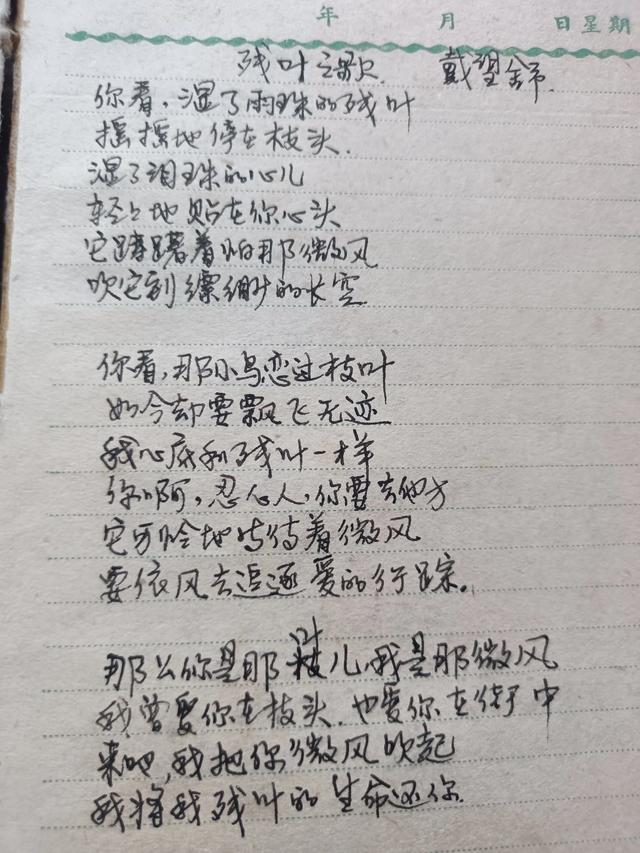 年 月 日星期
残叶之歌. 戴望舒.
你看，湿了雨珠的残叶
摇摇地停在枝头.
湿了泪珠的心儿
轻轻地贴在你心头
它踌躇着怕那微风
吹它到缥缈的长空
你看,那小鸟恋过枝叶
如今却要飘飞无迹
我心底和残叶一样
你啊,忍心人,你要去他方
它可怜地等待着微风
要依风去追逐爱的行踪。
那么你是那叶儿,我是那微风
我曾爱你在枝头.也爱你在街中
来吧,我把你微风吹起
我将我残叶的生命还你.